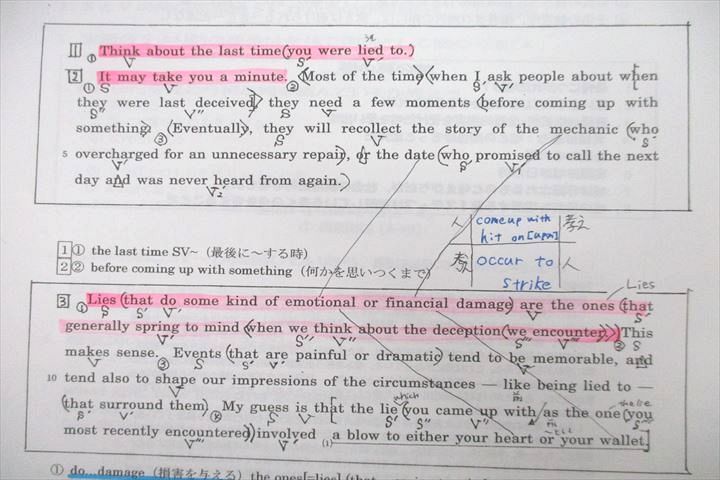 1 ① Think about the last time (you were lied to.)
2 ① It may take you a minute. ② ⟨Most of the time⟩⟨when I ask people about when
they were last deceived⟩, they need a few moments ⟨before coming up with
something⟩. ③ ⟨Eventually⟩, they will recollect the story of the mechanic (who
5 overcharged for an unnecessary repair), or the date (who promised to call the next
day and was never heard from again.)
人 come up with hit on [upon] 考え
1 ① the last time SV~（最後に～する時）
2 ② before coming up with something（何かを思いつくまで）
考え occur to strike 人
Lies
3 ① Lies (that do some kind of emotional or financial damage) are the ones (that
generally spring to mind ⟨when we think about the deception (we encounter.)⟩) ② This
makes sense. ③ Events (that are painful or dramatic) tend to be memorable, and
10 tend also to shape our impressions of the circumstances — like being lied to —
which
the lie
(that surround them). My guess is that the lie (you came up with / as the one (you
most recently encountered)) involved (1) a blow to either your heart or your wallet.
① do...damage（損害を与える） the ones[=lies]